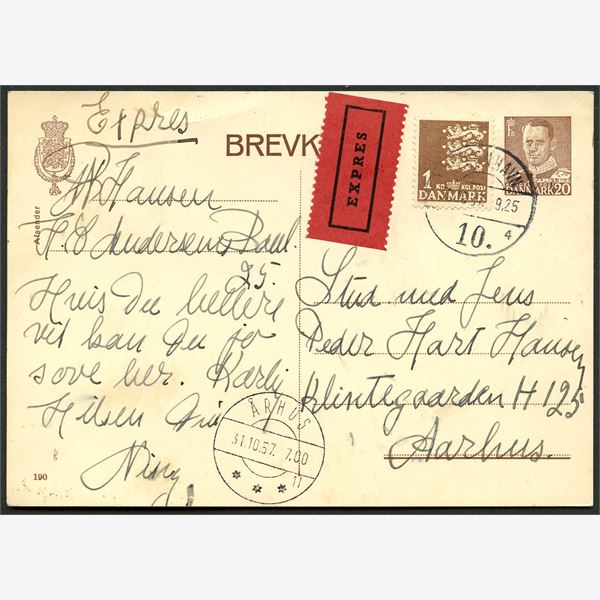 Expres
BREVK
EXPRES
1 KR. KGL.POST
DANMARK
DANMARK 20
HAVN
9.25
10. 4
Afsender
Hansen
H.C Andersens Boul.
75.
Hvis Du hellere
vil kan Du jo
sove her. Kærlig
Hilsen Din
Stud med Jens
Peder Hart Hansen
Klintegaarden H 125
Aarhus.
ÅRHUS
31.10.57. 7.00
* * * 11
190